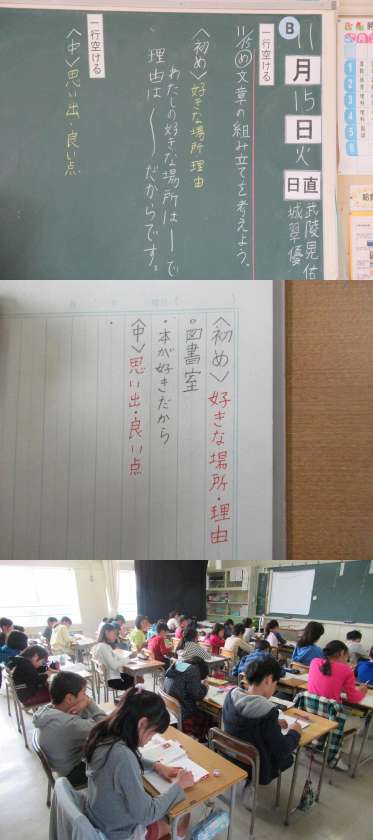 B
11月15日火
日直
武陵晃佑
城翠優
11/15 め 文章の組み立てを考えよう。
一行空ける
〈初め〉好きな場所 理由
わたしの好きな場所は〜で
理由は〜だからです。
一行空ける
〈中〉思い出・良い点
〈初め〉好きな場所・理由
図書室
・本が好きだから
〈中〉思い出・良い点
・